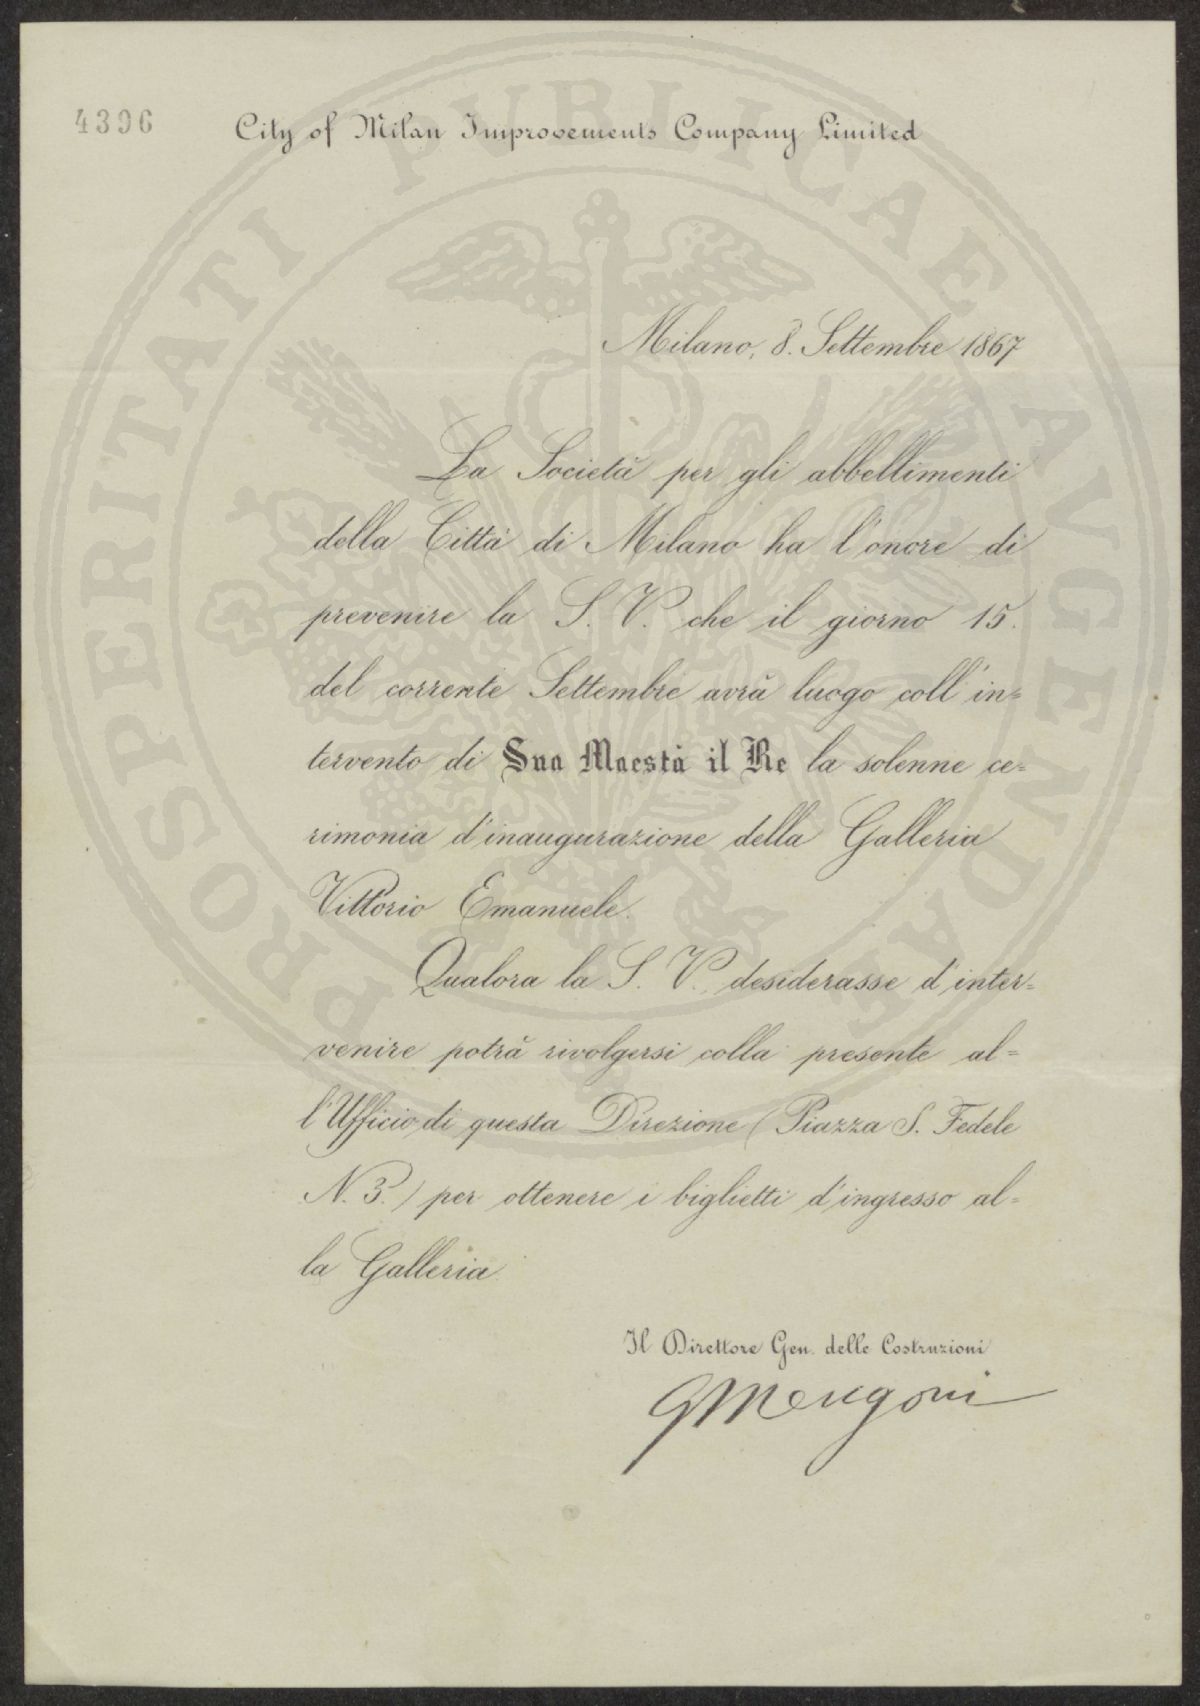 4396
City of Milan Improvements Company Limited
PROSPERITATI PUBLICAE AVGENDAE
Milano, 8. Settembre 1867
La Società per gli abbellimenti
della Città di Milano ha l'onore di
prevenire la S. V. che il giorno 15.
del corrente Settembre avrà luogo coll'in=
tervento di Sua Maestà il Re la solenne ce=
rimonia d'inaugurazione della Galleria
Vittorio Emanuele.
Qualora la S. V. desiderasse d'inter=
venire potrà rivolgersi colla presente al=
l'Ufficio di questa Direzione (Piazza S. Fedele
N. 3.) per ottenere i biglietti d'ingresso al=
la Galleria.
Il Direttore Gen. delle Costruzioni
GMengoni